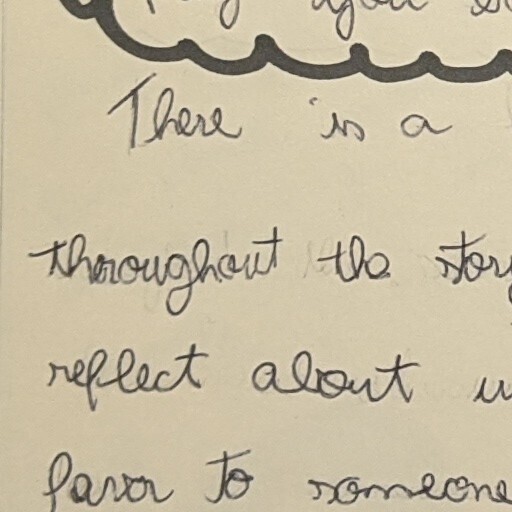 There is a
thoroughout the story
reflect about
favor to someone